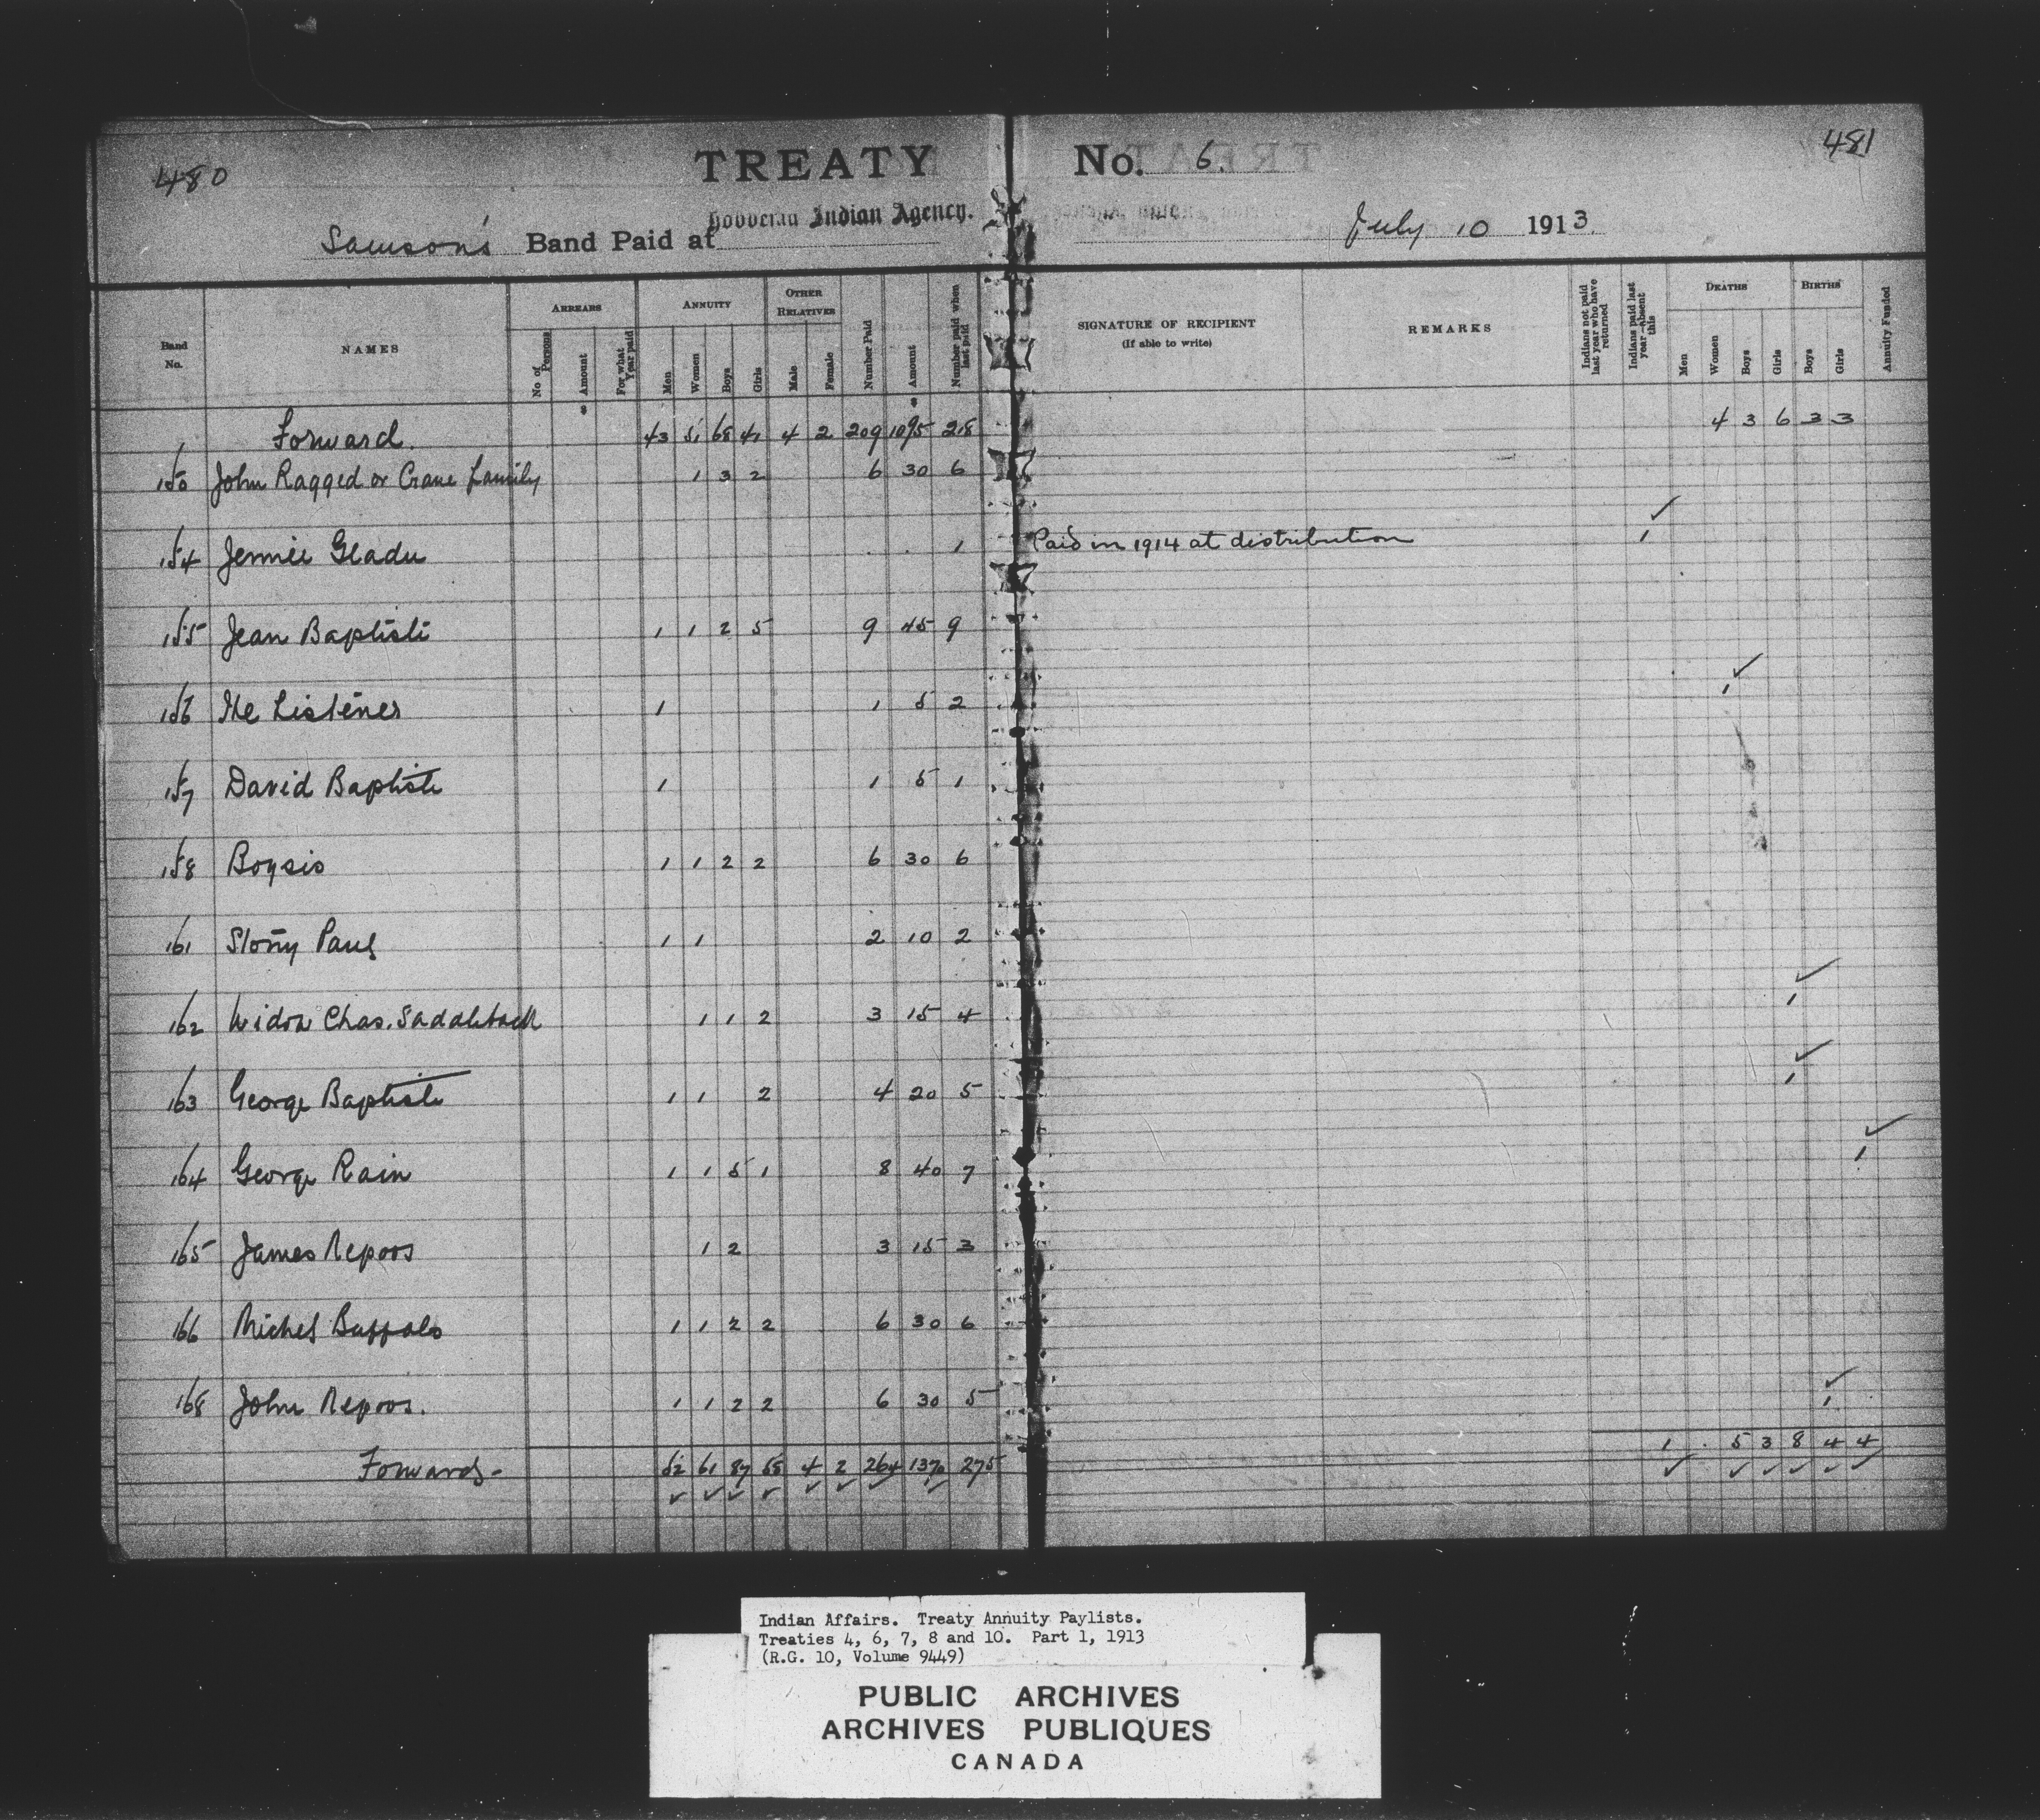 480
TREATY No. 6.
481
Samson's Band Paid at Hobbema Indian Agency. July 10 1913.
Band No. NAMES ARREARS No of Persons Amount For what Year paid ANNUITY Men Women Boys Girls OTHER RELATIVES Male Female Number Paid Amount Number paid when last paid SIGNATURE OF RECIPIENT (If able to write) REMARKS Indians not paid last year who have returned Indians paid last year—absent this DEATHS Men Women Boys Girls BIRTHS Boys Girls Annuity Funded
$ $
Forward. 43 51 68 41 4 2 209 1095 218 4 3 6 3 3
150 John Ragged or Crane family 1 3 2 6 30 6
154 Jennie Gladu 1 Paid in 1914 at distribution 1 ✓
155 Jean Baptiste 1 1 2 5 9 45 9
156 The Listener 1 1 5 2 1 ✓
157 David Baptiste 1 1 5 1
158 Boysis 1 1 2 2 6 30 6
161 Stony Paul 1 1 2 10 2
162 Widow Chas. Saddleback 1 1 2 3 15 4 1 ✓
163 George Baptiste 1 1 2 4 20 5 1 ✓
164 George Rain 1 1 5 1 8 40 7 1 ✓
165 James Nepoos 1 2 3 15 3
166 Michel Buffalo 1 1 2 2 6 30 6
168 John Nepoos. 1 1 2 2 6 30 5 1 ✓
Forward - 52 61 87 58 4 2 264 1370 275 1 5 3 8 4 4
✓ ✓ ✓ ✓ ✓ ✓ ✓ ✓ ✓ ✓ ✓ ✓ ✓ ✓
Indian Affairs. Treaty Annuity Paylists.
Treaties 4, 6, 7, 8 and 10. Part 1, 1913
(R.G. 10, Volume 9449)
PUBLIC ARCHIVES
ARCHIVES PUBLIQUES
CANADA